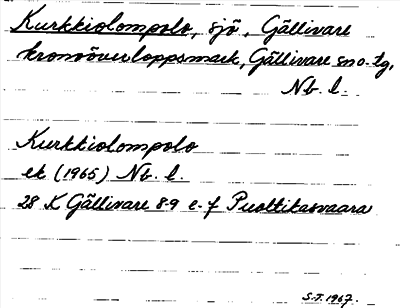 Kurkkiolompolo, sjö, Gällivare
kronoöverloppsmark, Gällivare sn o. tg,
Nb. l.
Kurkkiolompolo
ek (1965) Nb. l.
28 K Gällivare 8-9 e-f Puolttikasvaara
S.T. 1967.